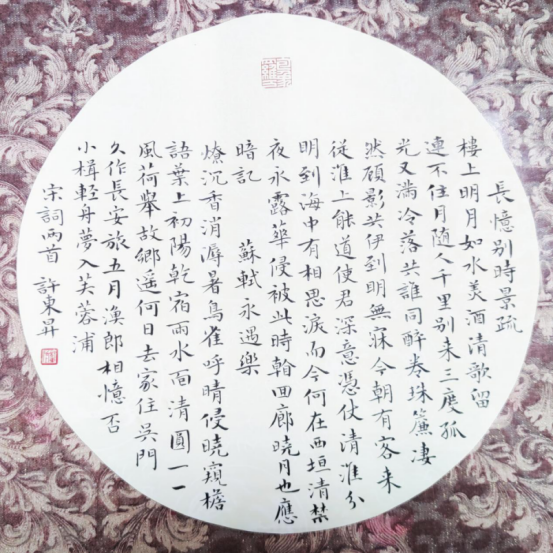 長憶別時景疏
樓上明月如水美酒清歌留
連不住月隨人千里別來三度孤
光又滿冷落共誰同醉卷珠簾凄
然顧影共伊到明無寐今朝有客來
從淮上能道使君深意憑仗清淮分
明到海中有相思淚而今何在西垣清禁
夜永露華侵被此時翰回廊曉月也應
暗記 蘇軾永遇樂
燎沉香消溽暑鳥雀呼晴侵曉窺檐
語葉上初陽乾宿雨水面清圓一一
風荷舉故鄉遙何日去家住吳門
久作長安旅五月漁郎相憶否
小楫輕舟夢入芙蓉浦
宋詞兩首 許東昇